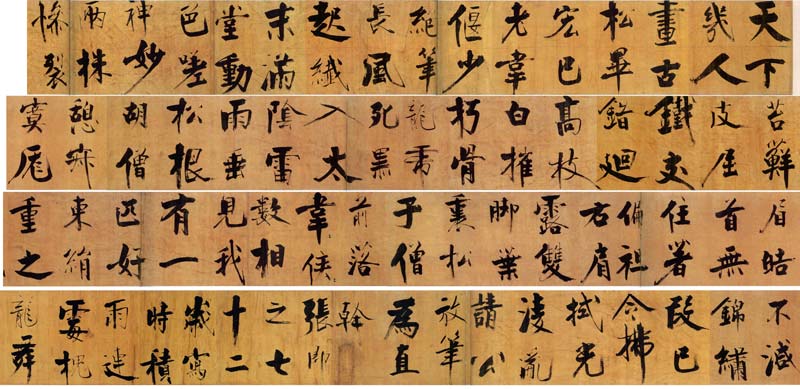 天下
幾人
畫古
松畢
宏已
老韋
偃少
絕筆
長風
起纖
末滿
堂動
色嗟
神妙
兩株
慘裂
苔蘚
皮屈
鐵交
錯迴
高枝
白摧
朽骨
龍虎
死黑
入太
陰雷
雨垂
松根
胡僧
憩寂
寞厖
眉皓
首無
住著
偏袒
右肩
露雙
脚葉
裏松
子僧
前落
韋侯
數相
見我
有一
匹好
東絹
重之
不減
錦繡
段已
令拂
拭光
凌亂
請公
放筆
為直
幹
張即
之七
十二
歲寫
時積
雨連
霉槐
龍舞